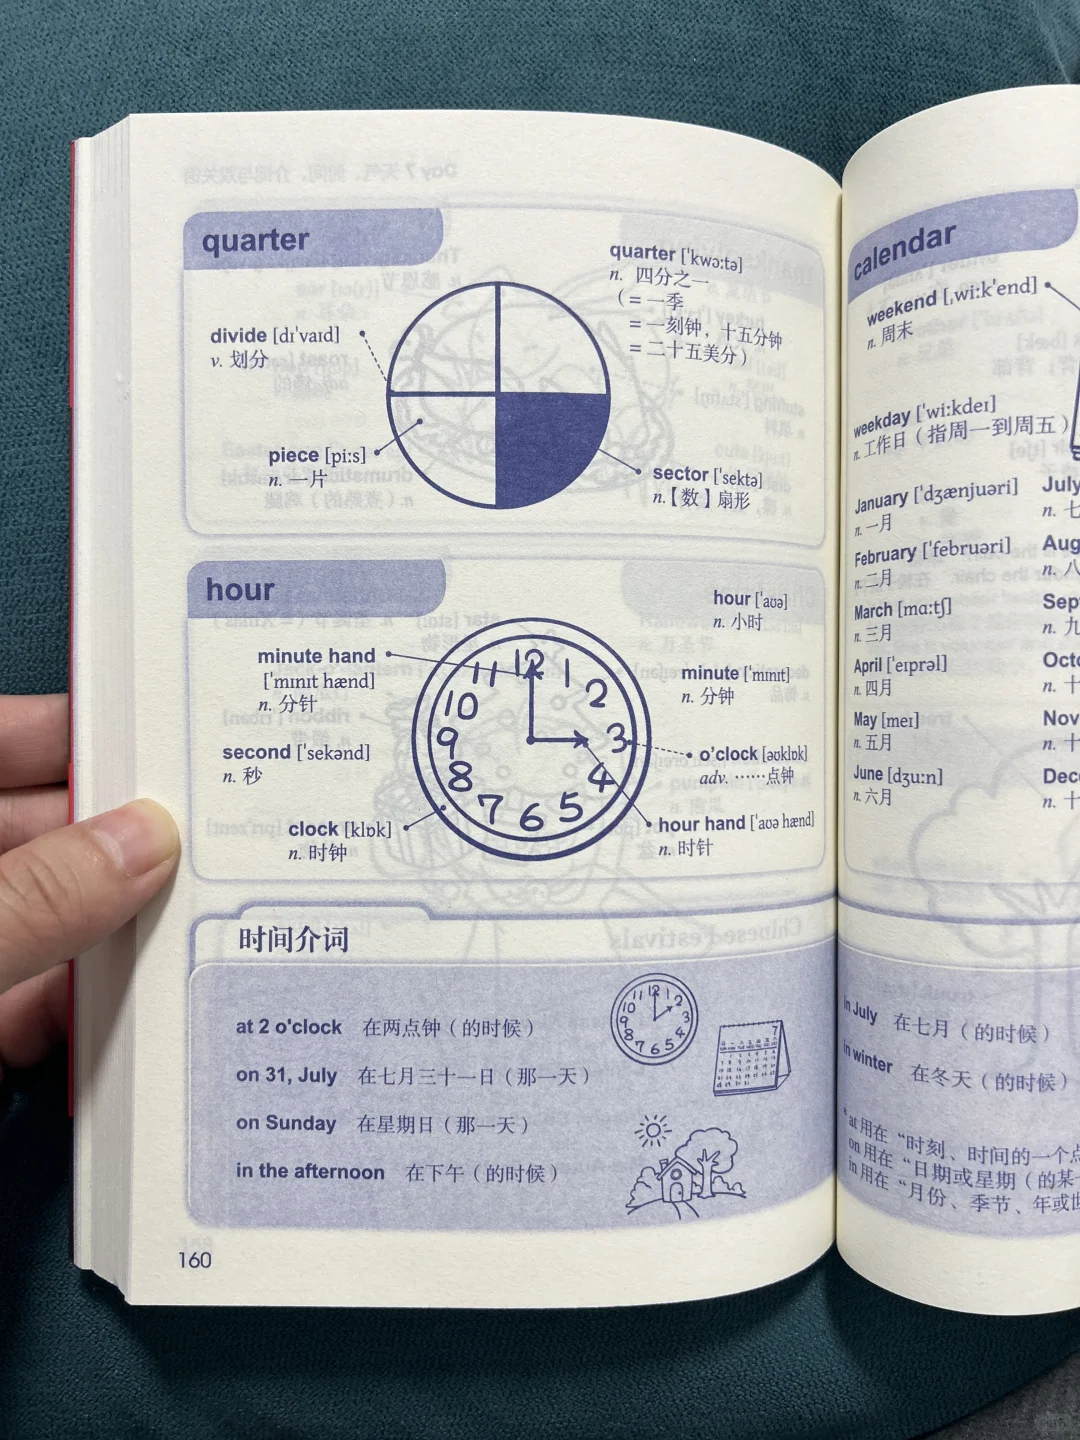 quarter
quarter ['kwɔ:tə]
n. 四分之一
( = 一季
= 一刻钟，十五分钟
= 二十五美分）
divide [dɪ'vaɪd]
v. 划分
piece [pi:s]
n. 一片
sector ['sektə]
n.【数】扇形
hour
hour ['aʊə]
n. 小时
minute hand
['mɪnɪt hænd]
n. 分针
minute ['mɪnɪt]
n. 分钟
second ['sekənd]
n. 秒
o'clock [əʊklɒk]
adv. ……点钟
clock [klɒk]
n. 时钟
hour hand ['aʊə hænd]
n. 时针
11 12 1
10 2
9 3
8 4
7 6 5
时间介词
at 2 o'clock 在两点钟（的时候）
on 31, July 在七月三十一日（那一天）
on Sunday 在星期日（那一天）
in the afternoon 在下午（的时候）
160
calendar
weekend [ˌwi:k'end]
n. 周末
weekday ['wi:kdeɪ]
n. 工作日（指周一到周五）
January ['dʒænjuəri]
n. 一月
February ['februəri]
n. 二月
March [mɑ:tʃ]
n. 三月
April ['eɪprəl]
n. 四月
May [meɪ]
n. 五月
June [dʒu:n]
n. 六月
July
n. 七
Aug
n. 八
Sept
n. 九
Octo
n. 十
Nov
n. 十
Dece
n. 十
in July 在七月（的时候）
in winter 在冬天（的时候）
* at 用在“时刻、时间的一个点
on 用在“日期或星期（的某一
in 用在“月份、季节、年或世